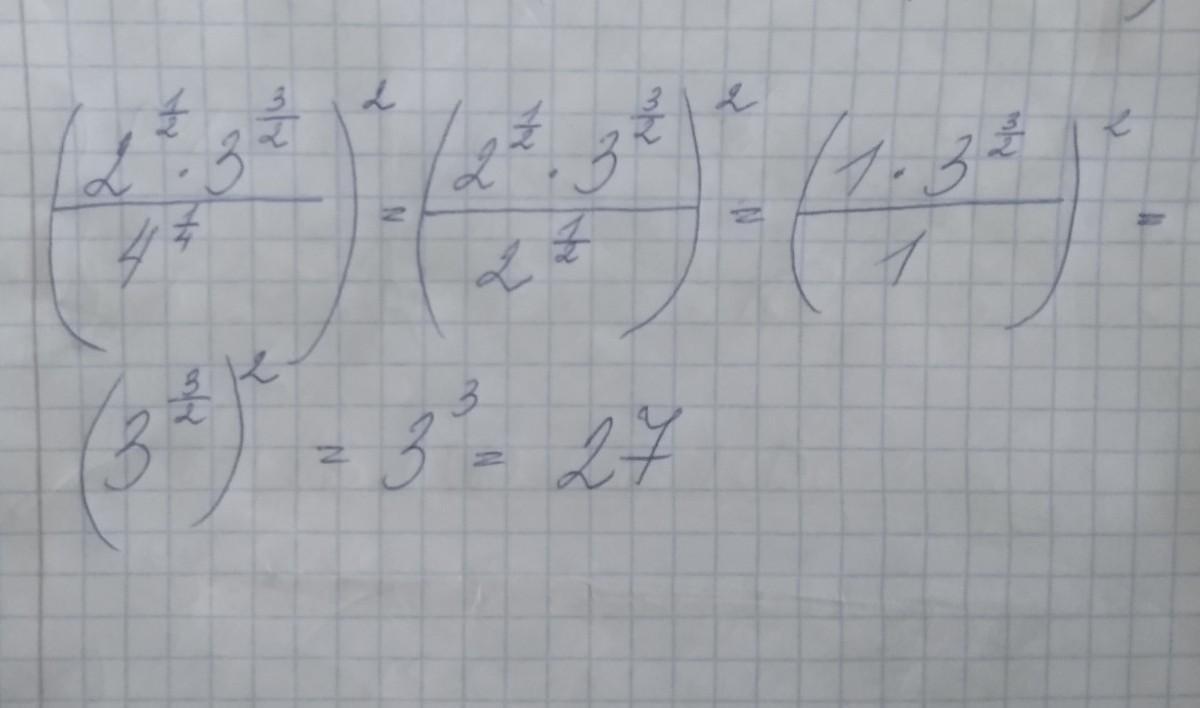 (2^{1/2} · 3^{3/2} / 4^{1/4})^2 = (2^{1/2} · 3^{3/2} / 2^{1/2})^2 = (1 · 3^{3/2} / 1)^2 =
(3^{3/2})^2 = 3^3 = 27